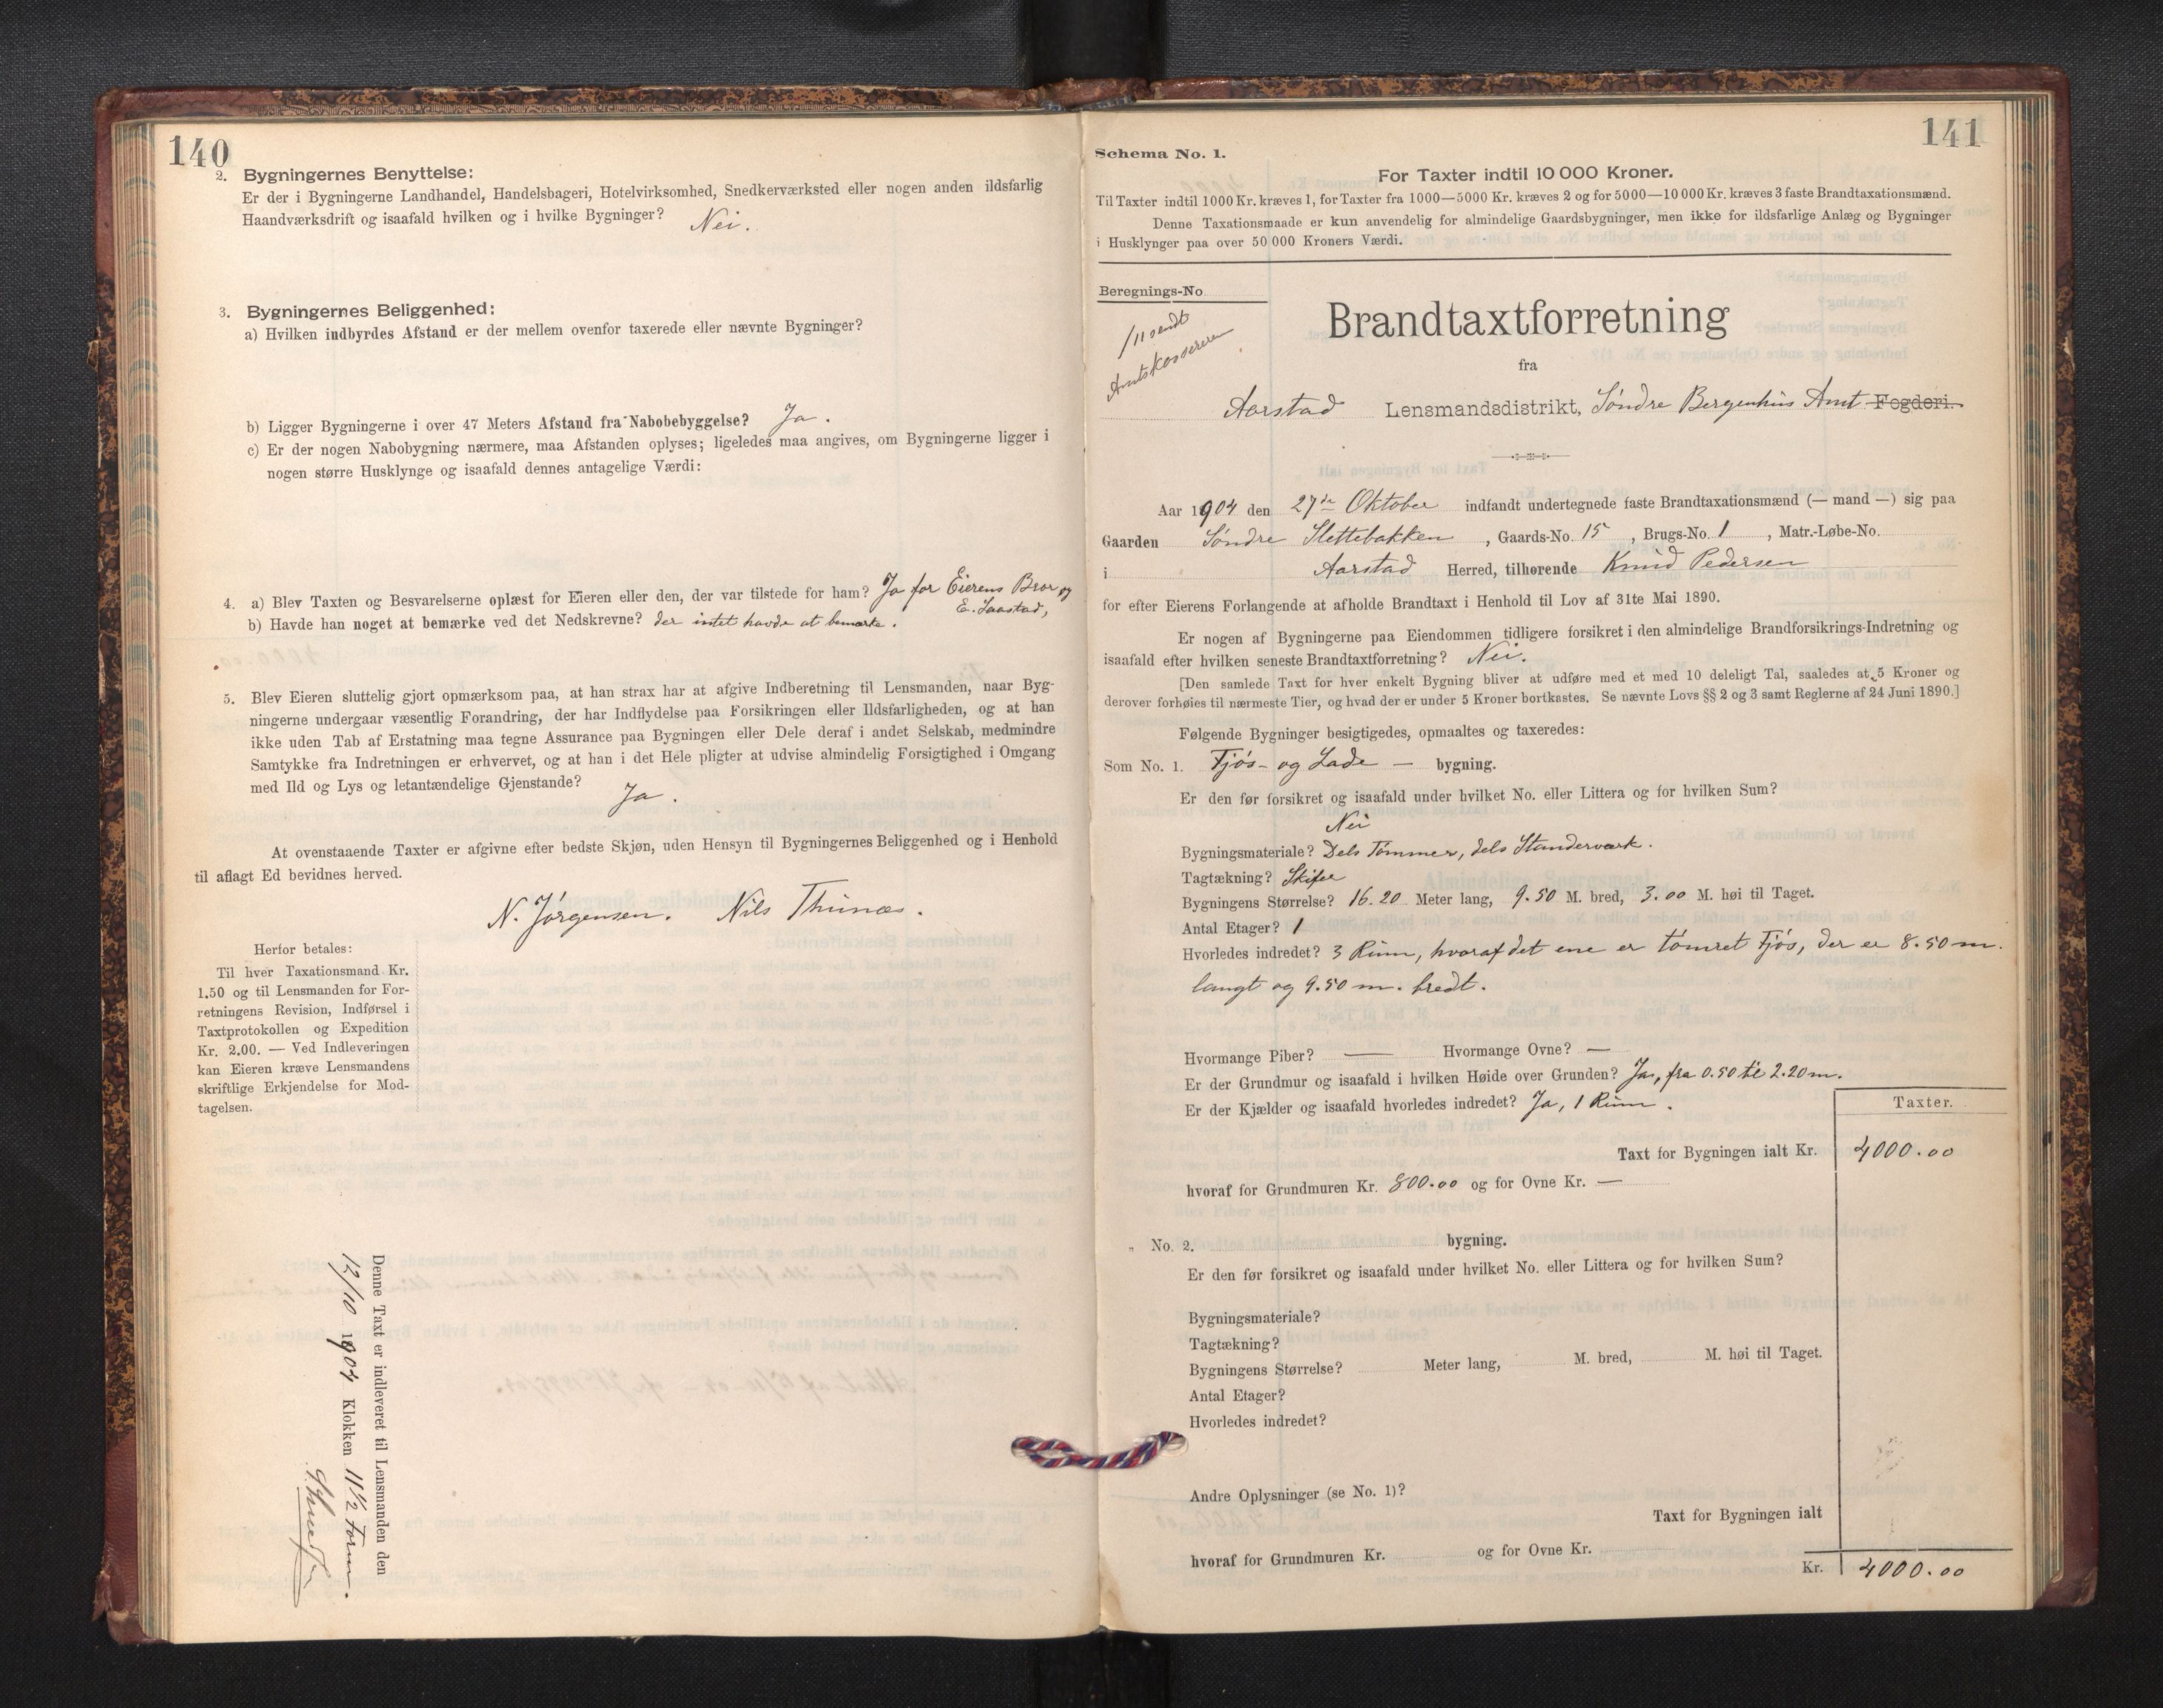 140
2. Bygningernes Benyttelse:
Er der i Bygningerne Landhandel, Handelsbageri, Hotelvirksomhed, Snedkerværksted eller nogen anden ildsfarlig
Haandværksdrift og isaafald hvilken og i hvilke Bygninger? Nei.
3. Bygningernes Beliggenhed:
a) Hvilken indbyrdes Afstand er der mellem ovenfor taxerede eller nævnte Bygninger?
b) Ligger Bygningerne i over 47 Meters Afstand fra Nabobebyggelse? Ja.
c) Er der nogen Nabobygning nærmere, maa Afstanden oplyses; ligeledes maa angives, om Bygningerne ligger i
nogen større Husklynge og isaafald dennes antagelige Værdi:
4. a) Blev Taxten og Besvarelserne oplæst for Eieren eller den, der var tilstede for ham? Ja for Eierens Bror og
E. Saastad,
b) Havde han noget at bemærke ved det Nedskrevne? der intet havde at bemærke.
5. Blev Eieren sluttelig gjort opmærksom paa, at han strax har at afgive Indberetning til Lensmanden, naar Byg-
ningerne undergaar væsentlig Forandring, der har Indflydelse paa Forsikringen eller Ildsfarligheden, og at han
ikke uden Tab af Erstatning maa tegne Assurance paa Bygningen eller Dele deraf i andet Selskab, medmindre
Samtykke fra Indretningen er erhvervet, og at han i det Hele pligter at udvise almindelig Forsigtighed i Omgang
med Ild og Lys og letantændelige Gjenstande?
Ja.
At ovenstaaende Taxter er afgivne efter bedste Skjøn, uden Hensyn til Bygningernes Beliggenhed og i Henhold
til aflagt Ed bevidnes herved.
N. Jørgensen. Nils Thunæs.
Herfor betales:
Til hver Taxationsmand Kr.
1.50 og til Lensmanden for For-
retningens Revision, Indførsel i
Taxtprotokollen og Expedition
Kr. 2.00. — Ved Indleveringen
kan Eieren kræve Lensmandens
skriftlige Erkjendelse for Mod-
tagelsen.
Denne Taxt er indleveret til Lensmanden den
12/10 1904 Klokken 11½ Form.
141
Schema No. 1.
For Taxter indtil 10 000 Kroner.
Til Taxter indtil 1000 Kr. kræves 1, for Taxter fra 1000—5000 Kr. kræves 2 og for 5000—10 000 Kr. kræves 3 faste Brandtaxationsmænd.
Denne Taxationsmaade er kun anvendelig for almindelige Gaardsbygninger, men ikke for ildsfarlige Anlæg og Bygninger
i Husklynger paa over 50 000 Kroners Værdi.
Beregnings-No.
/11 sendt
Amtskassereren
Brandtaxtforretning
fra
Aarstad Lensmandsdistrikt, Søndre Bergenhus Amt Fogderi.
Aar 1904 den 27de Oktober indfandt undertegnede faste Brandtaxationsmænd (— mand —) sig paa
Gaarden Søndre Slettebakken, Gaards-No. 15, Brugs-No. 1, Matr.-Løbe-No.
i Aarstad Herred, tilhørende Knud Pedersen
for efter Eierens Forlangende at afholde Brandtaxt i Henhold til Lov af 31te Mai 1890.
Er nogen af Bygningerne paa Eiendommen tidligere forsikret i den almindelige Brandforsikrings-Indretning og
isaafald efter hvilken seneste Brandtaxtforretning? Nei.
[Den samlede Taxt for hver enkelt Bygning bliver at udføre med et med 10 deleligt Tal, saaledes at 5 Kroner og
derover forhøies til nærmeste Tier, og hvad der er under 5 Kroner bortkastes. Se nævnte Lovs §§ 2 og 3 samt Reglerne af 24 Juni 1890.]
Følgende Bygninger besigtigedes, opmaaltes og taxeredes:
Som No. 1. Fjøs- og Lade — bygning.
Er den før forsikret og isaafald under hvilket No. eller Littera og for hvilken Sum?
Nei
Bygningsmateriale? Dels Tømmer, dels Standerværk.
Tagtækning? Skifer
Bygningens Størrelse? 16.20 Meter lang, 9.50 M. bred, 3.00 M. høi til Taget.
Antal Etager? 1
Hvorledes indredet? 3 Rum, hvoraf det ene er tømret Fjøs, der er 8.50 m.
langt og 9.50 m. bredt.
Hvormange Piber? — Hvormange Ovne? —
Er der Grundmur og isaafald i hvilken Høide over Grunden? Ja, fra 0.50 til 2.20 m.
Er der Kjælder og isaafald hvorledes indredet? Ja, 1 Rum.
Taxter.
Taxt for Bygningen ialt Kr. 4000.00
hvoraf for Grundmuren Kr. 800.00 og for Ovne Kr. —
„ No. 2. bygning.
Er den før forsikret og isaafald under hvilket No. eller Littera og for hvilken Sum?
Bygningsmateriale?
Tagtækning?
Bygningens Størrelse? Meter lang, M. bred, M. høi til Taget.
Antal Etager?
Hvorledes indredet?
Andre Oplysninger (se No. 1)?
Taxt for Bygningen ialt
hvoraf for Grundmuren Kr. og for Ovne Kr.
Kr. 4000.00